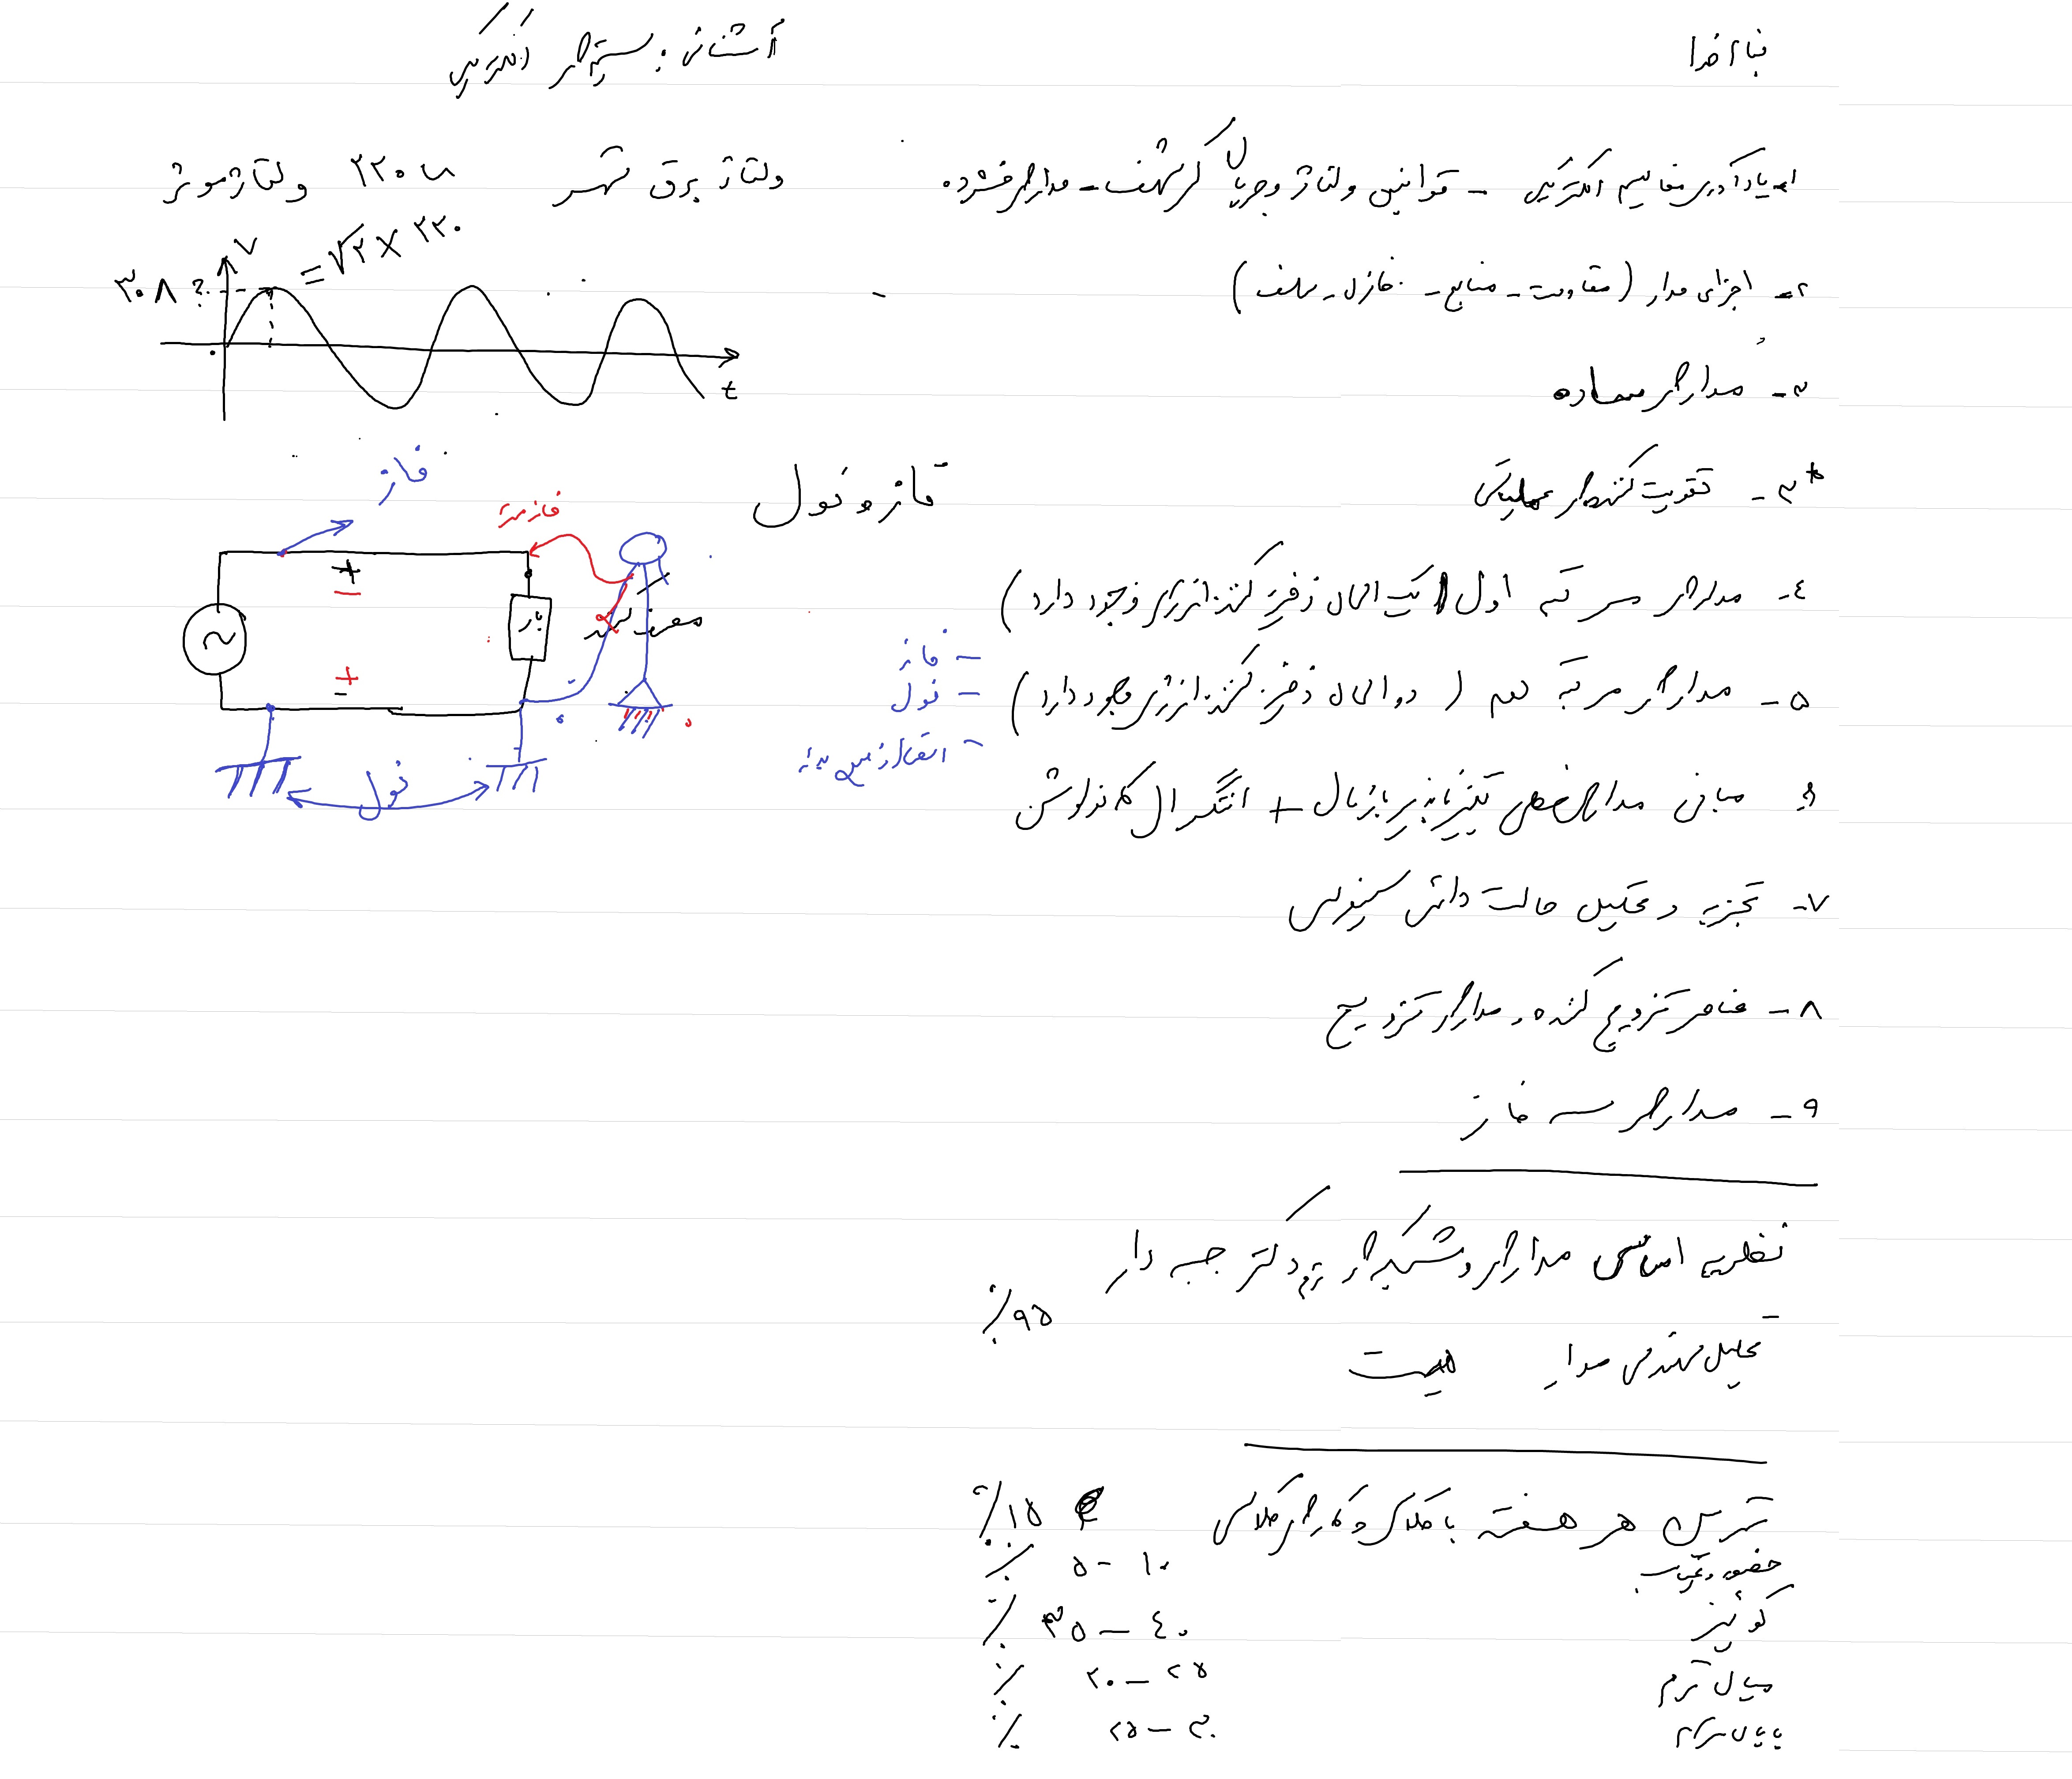 بنام خدا
۱- یادآوری مفاهیم الکتریکی - قوانین ولتاژ و جریان کرشهف - مدارهای فشرده
۲- اجزای مدار (مقاومت - منابع - خازن - سلف)
۳- مدارهای ساده
*۳- تقویت کننده‌های عملیاتی
٤- مدارهای مرتبه اول (یک المان ذخیره کننده انرژی وجود دارد)
۵- مدارهای مرتبه دوم (دو المان ذخیره کننده انرژی وجود دارد)
۶ مبانی مدارهای خطی تغییرناپذیر با زمان + انتگرال کانولوشن
۷- تجزیه و تحلیل حالت دائمی سینوسی
۸- عناصر تزویج کننده و مدارهای تزویج
۹- مدارهای سه فاز
نظریه اساسی مدارها و شبکه‌ها ترجمه دکتر جبه دار
٪۹۵
تحلیل مهندسی مدار هیت
تمرین هر هفته با کلاس و کارهای کلاسی ۱۵٪
حضور و غیاب ۵-۱۰ ٪
کوئیز ۳۵-٤۰ ٪
میان ترم ۲۰-۲۵ ٪
پایان ترم ۲۵-۳۰ ٪
آشنائی با سیستم‌های الکتریکی
ولتاژ برق شهر ۲۲۰ v ولتاژ موثر
۳۰۸ ? = √۲ × ۲۲۰
V
t
۰
فاز و نول
فاز
فاز متر
+
-
~
بار
مصرف کننده
+
-
نول
- فاز
- نول
- اتصال زمین بدنه